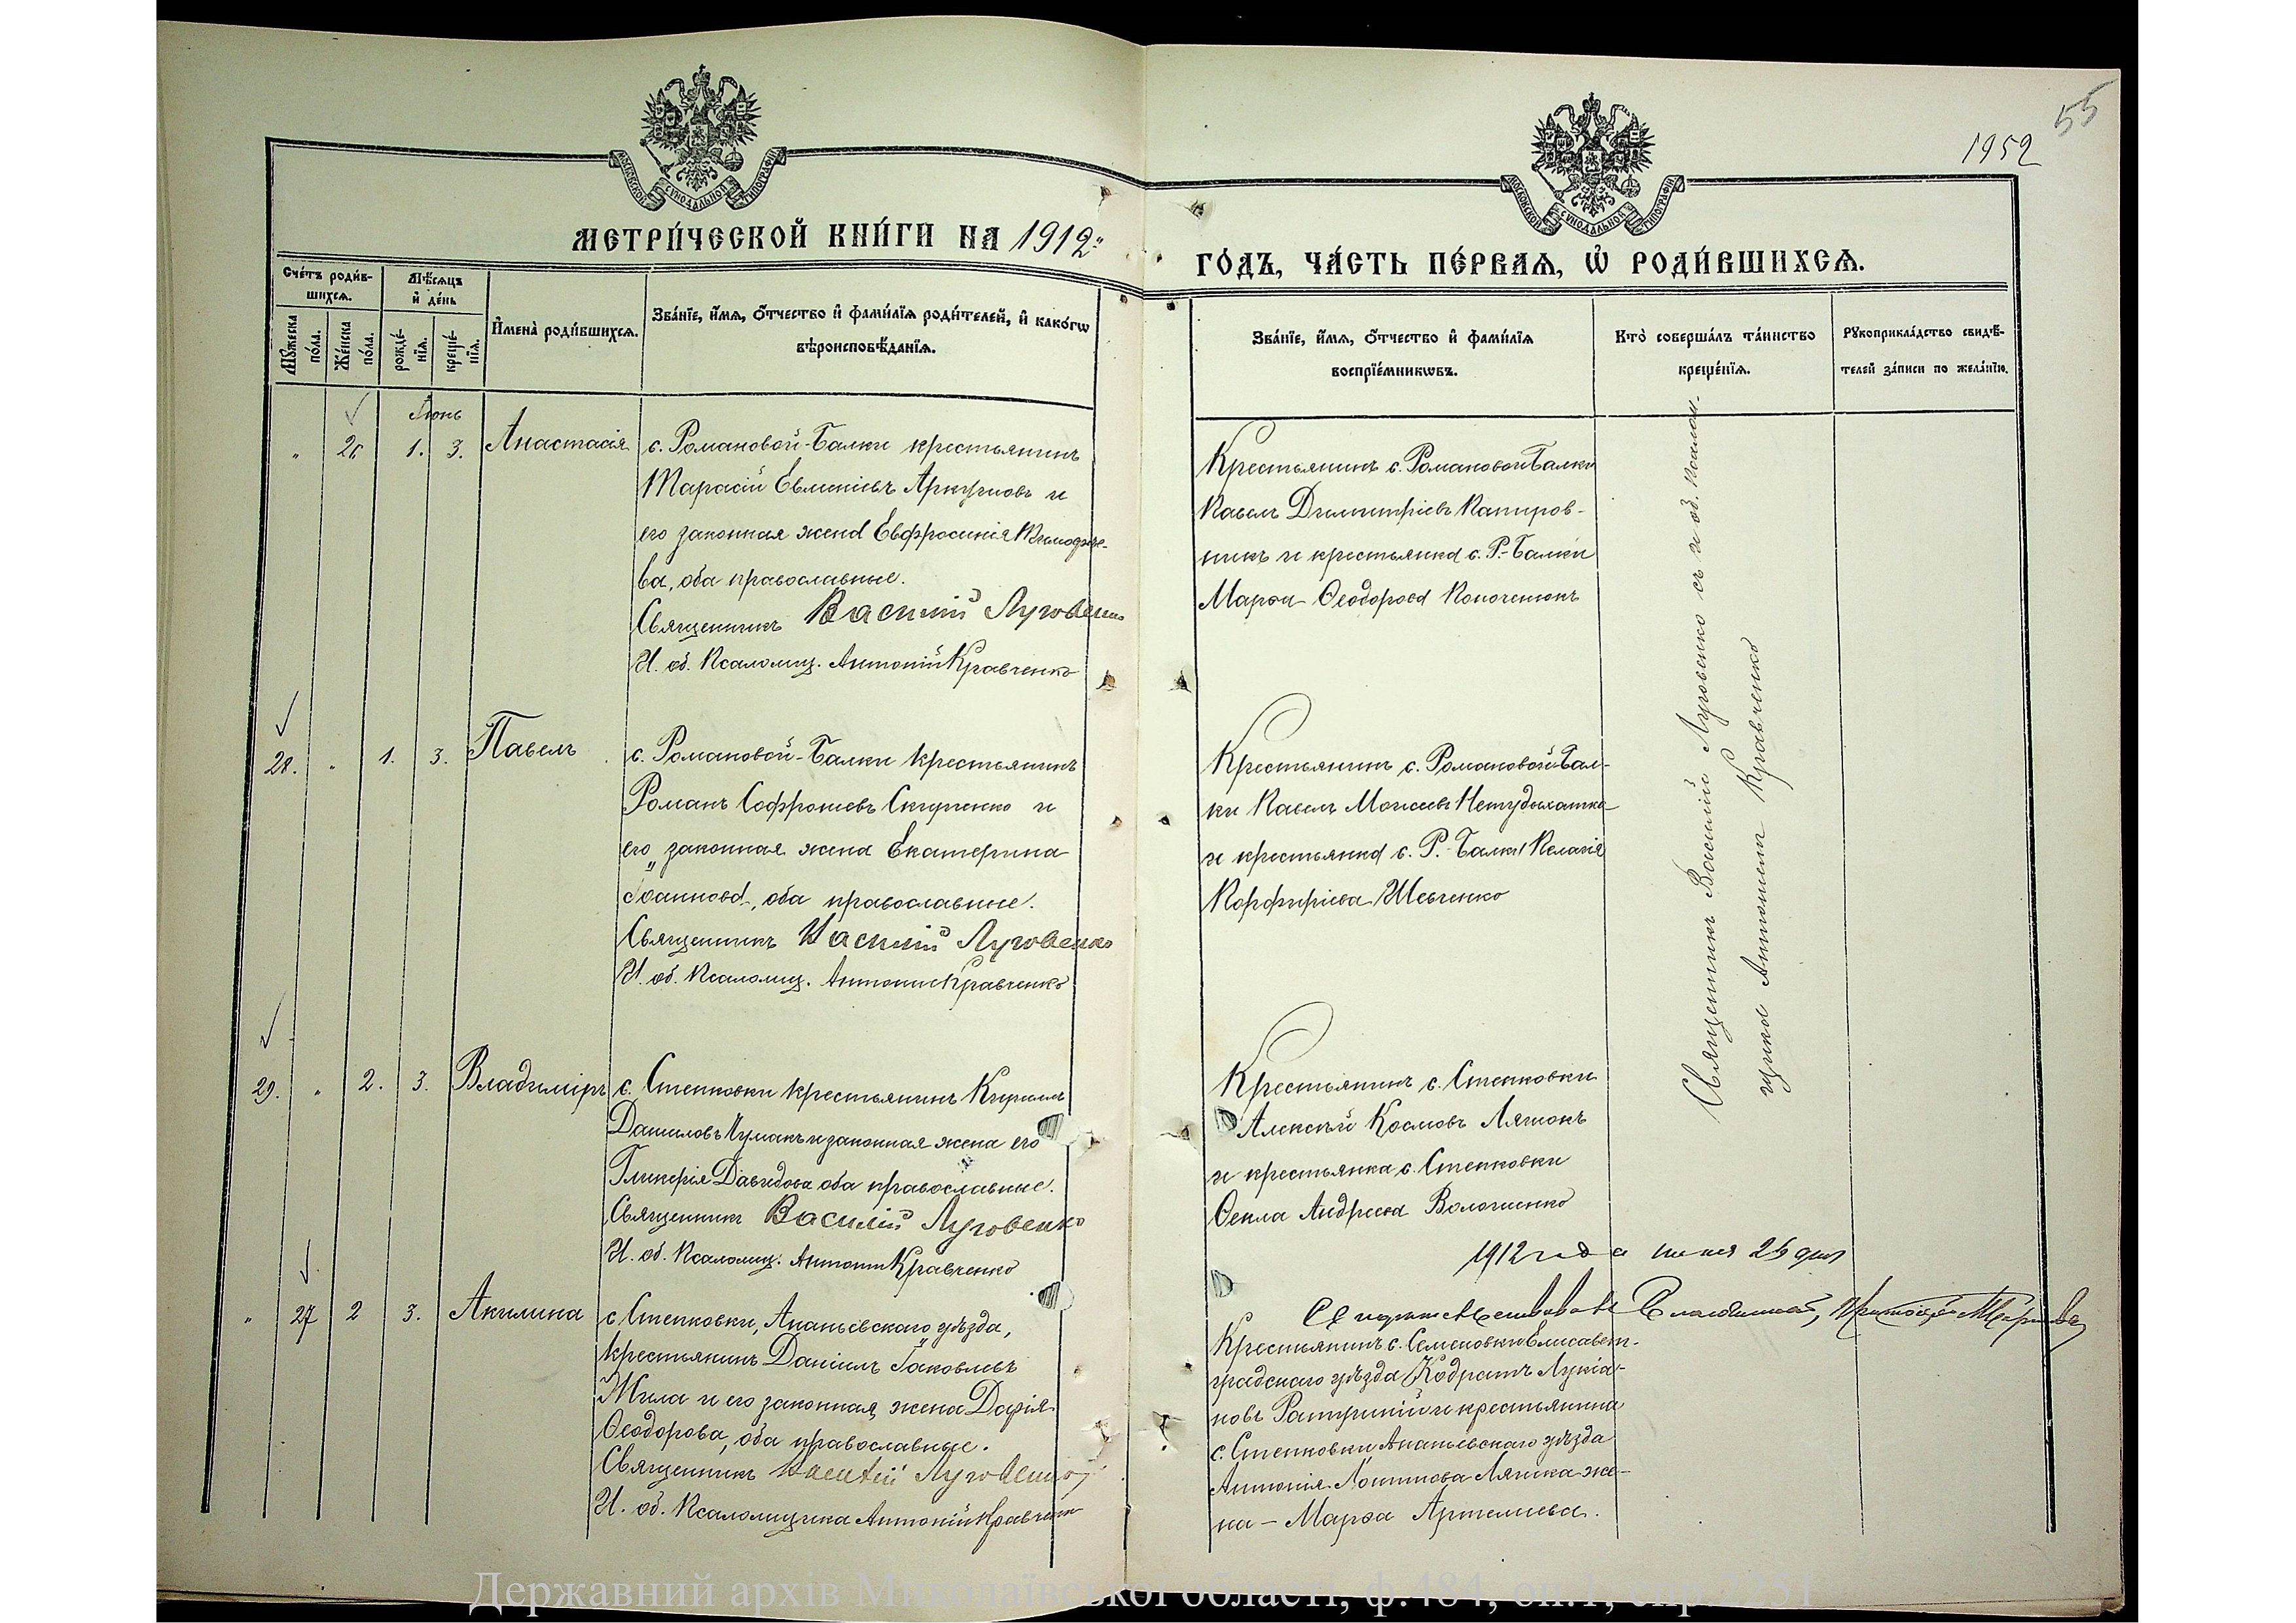 55
1952
МЕТРИ́ЧЕСКОЙ КНИ́ГИ НА 1912
ГО́ДЪ, ЧА́СТЬ ПЕ́РВАЯ, Ѡ РОДИ́ВШИХСЯ.
Сче́тъ роди́в-
шихся.
Мѣ́сяцъ
и де́нь
Мꙋ́жеска
по́ла.
Же́нска
по́ла.
рожде́-
нїя.
креще́-
нїя.
Имена̀ роди́вшихся.
Зва́нїе, и́мя, о́тчество и фами́лїя роди́телей, и како́гѡ
вѣроисповѣ́данїя.
Зва́нїе, и́мя, о́тчество и фами́лїя
воспрїе́мникѡвъ.
Кто̀ соверша́лъ та́инство
креще́нїя.
Рꙋкоприкла́дство свидѣ́-
телей за́писи по жела́нїю.
Іюнь
" 26 1. 3. Анастасія
с. Романовой-Балки крестьянинъ
Тарасій
его законная жена Евфросинія
ва, оба православные.
Священникъ Василій Луговенко
И. об. Псаломщ. Антоній Кравченко
Крестьянинъ с. Романовой Балки
Павелъ Димитріевъ Папиров-
никъ и крестьянка с. Р.-Балки
Марѳа Ѳеодорова
28. " 1. 3. Павелъ
с. Романовой-Балки крестьянинъ
Романъ Софроніевъ и
его законная жена Екатерина
Іоаннова, оба православные.
Священникъ Василій Луговенко
И. об. Псаломщ. Антоній Кравченко
Крестьянинъ с. Романовой Бал-
ки Павелъ Моисеевъ Нетудыхатка
и крестьянка с. Р.-Балки Пелагія
Порфиріева Шевченко
29. " 2. 3. Владиміръ
с. Степковки крестьянинъ Кириллъ
Даниловъ Чумакъ и законная жена его
Гликерія Давидова оба православные.
Священникъ Василій Луговенко
И. об. Псаломщ. Антоній Кравченко
Крестьянинъ с. Степковки
Алексѣй Космовъ Ляшокъ
и крестьянка с. Степковки
Ѳекла Андреева Волошенко
" 27 2 3. Акилина
с. Степковки, Ананьевскаго уѣзда,
крестьянинъ Даніилъ Іаковлевъ
Жила и его законная жена Дарія
Ѳеодорова, оба православные.
Священникъ Василій Луговенко
И. об. Псаломщика Антоній Кравченко
1912 года іюня 26 дня
Крестьянинъ с. Семеновки Елисавет-
градскаго уѣзда Кодратъ Лукіа-
новъ и крестьянина
с. Степковки Ананьевскаго уѣзда
Антонія Логинова Ляшка же-
на - Марѳа Артемиева.
Священникъ Василій Луговенко съ и об. псалом-
щика Антоніемъ Кравченко
Державний архів Миколаївської області, ф.484, оп.1,